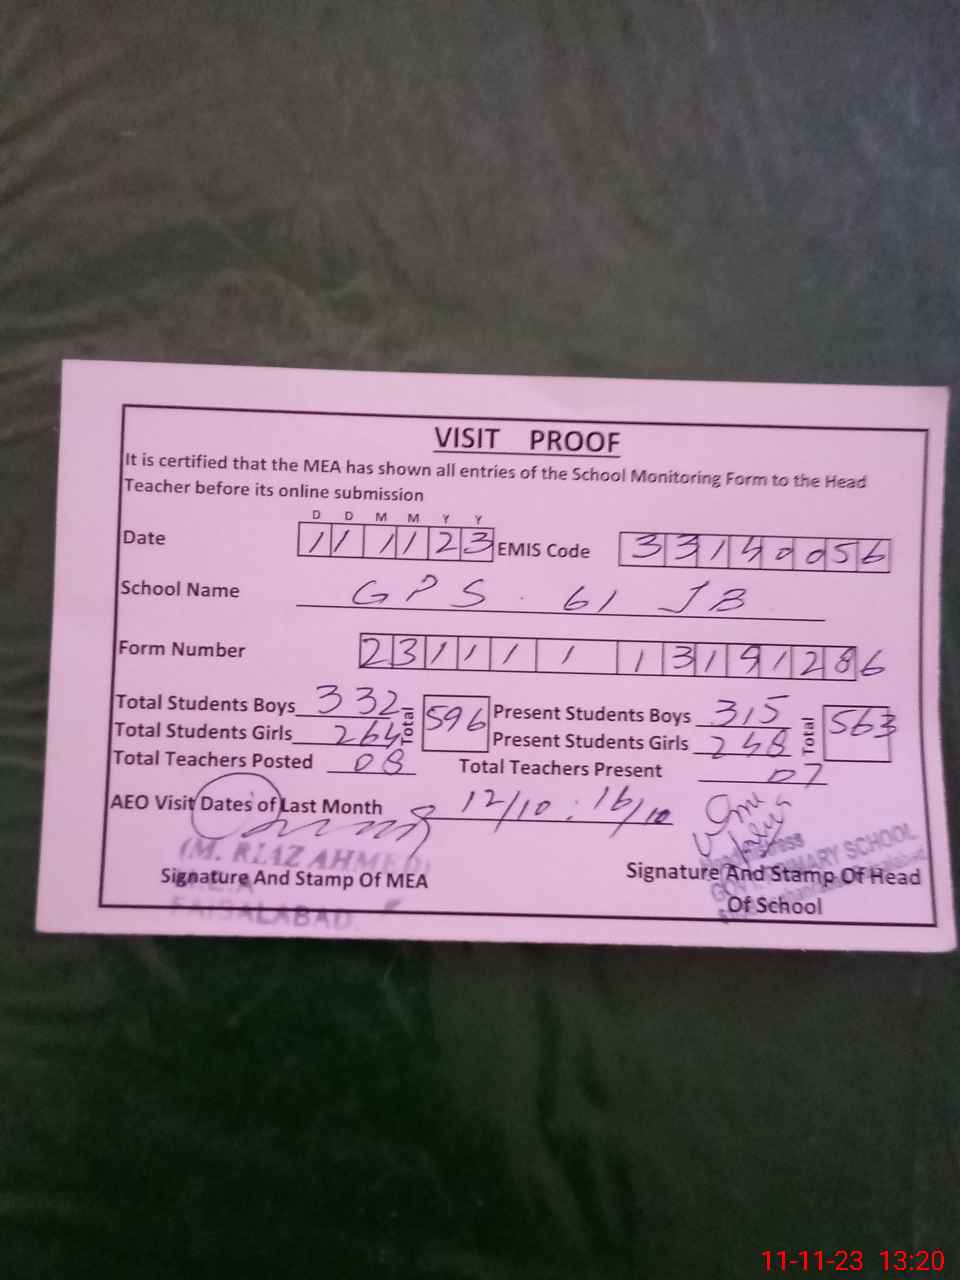 VISIT PROOF
It is certified that the MEA has shown all entries of the School Monitoring Form to the Head
Teacher before its online submission
D D M M Y Y
Date 11 11 23 EMIS Code 33140056
School Name GPS. 61 JB
Form Number 23111113191286
Total Students Boys 332 Total 596 Present Students Boys 315 Total 563
Total Students Girls 264 Present Students Girls 248
Total Teachers Posted 08 Total Teachers Present 07
AEO Visit Dates of Last Month 12/10 . 16/10
(M. RIAZ AHMED)
Signature And Stamp Of MEA
FAISALABAD.
GOVT. PRIMARY SCHOOL
Signature And Stamp Of Head
Of School
11-11-23 13:20